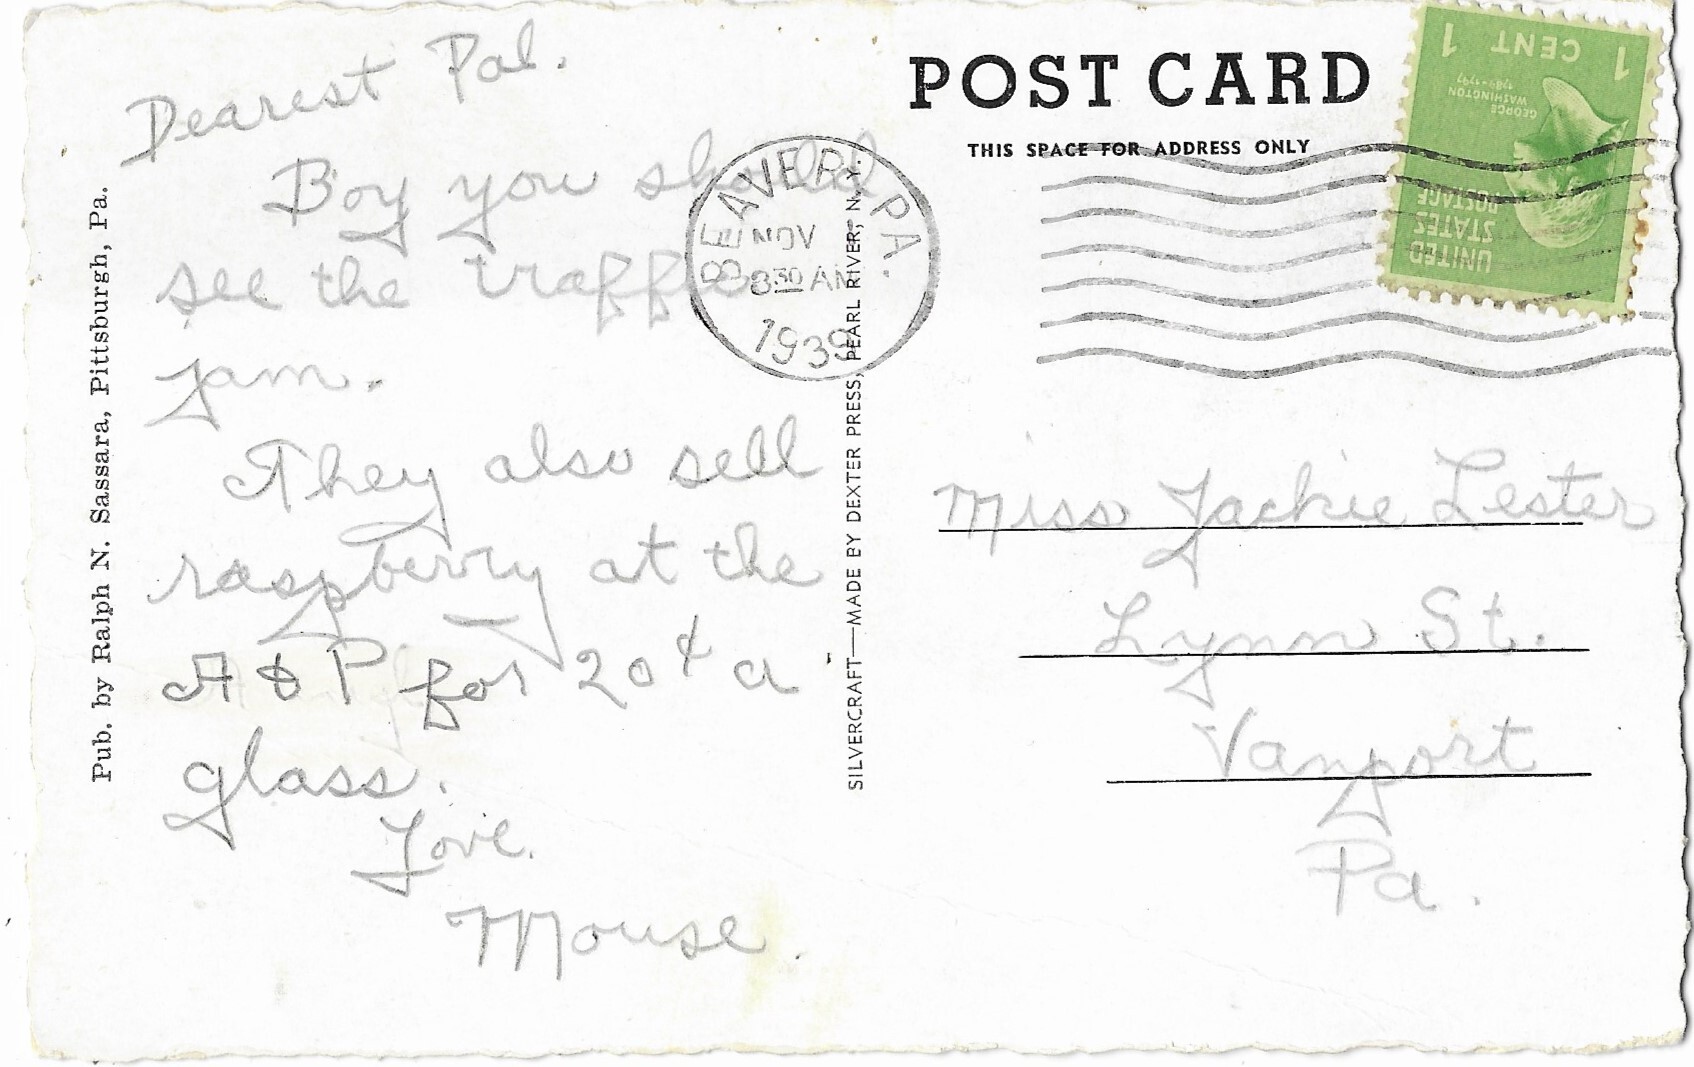 Dearest Pal.
Boy you should
see the traffic
jam.
They also sell
raspberry at the
A & P for 20¢ a
glass.
Love.
Mouse.
Pub. by Ralph N. Sassara, Pittsburgh, Pa.
SILVERCRAFT—MADE BY DEXTER PRESS, PEARL RIVER, N.Y.
POST CARD
THIS SPACE FOR ADDRESS ONLY
BEAVER, PA.
NOV
8 30 AM
1939
1 CENT 1
GEORGE
WASHINGTON
1789-1797
UNITED
STATES
POSTAGE
Miss Jackie Lester
Lynn St.
Vanport
Pa.